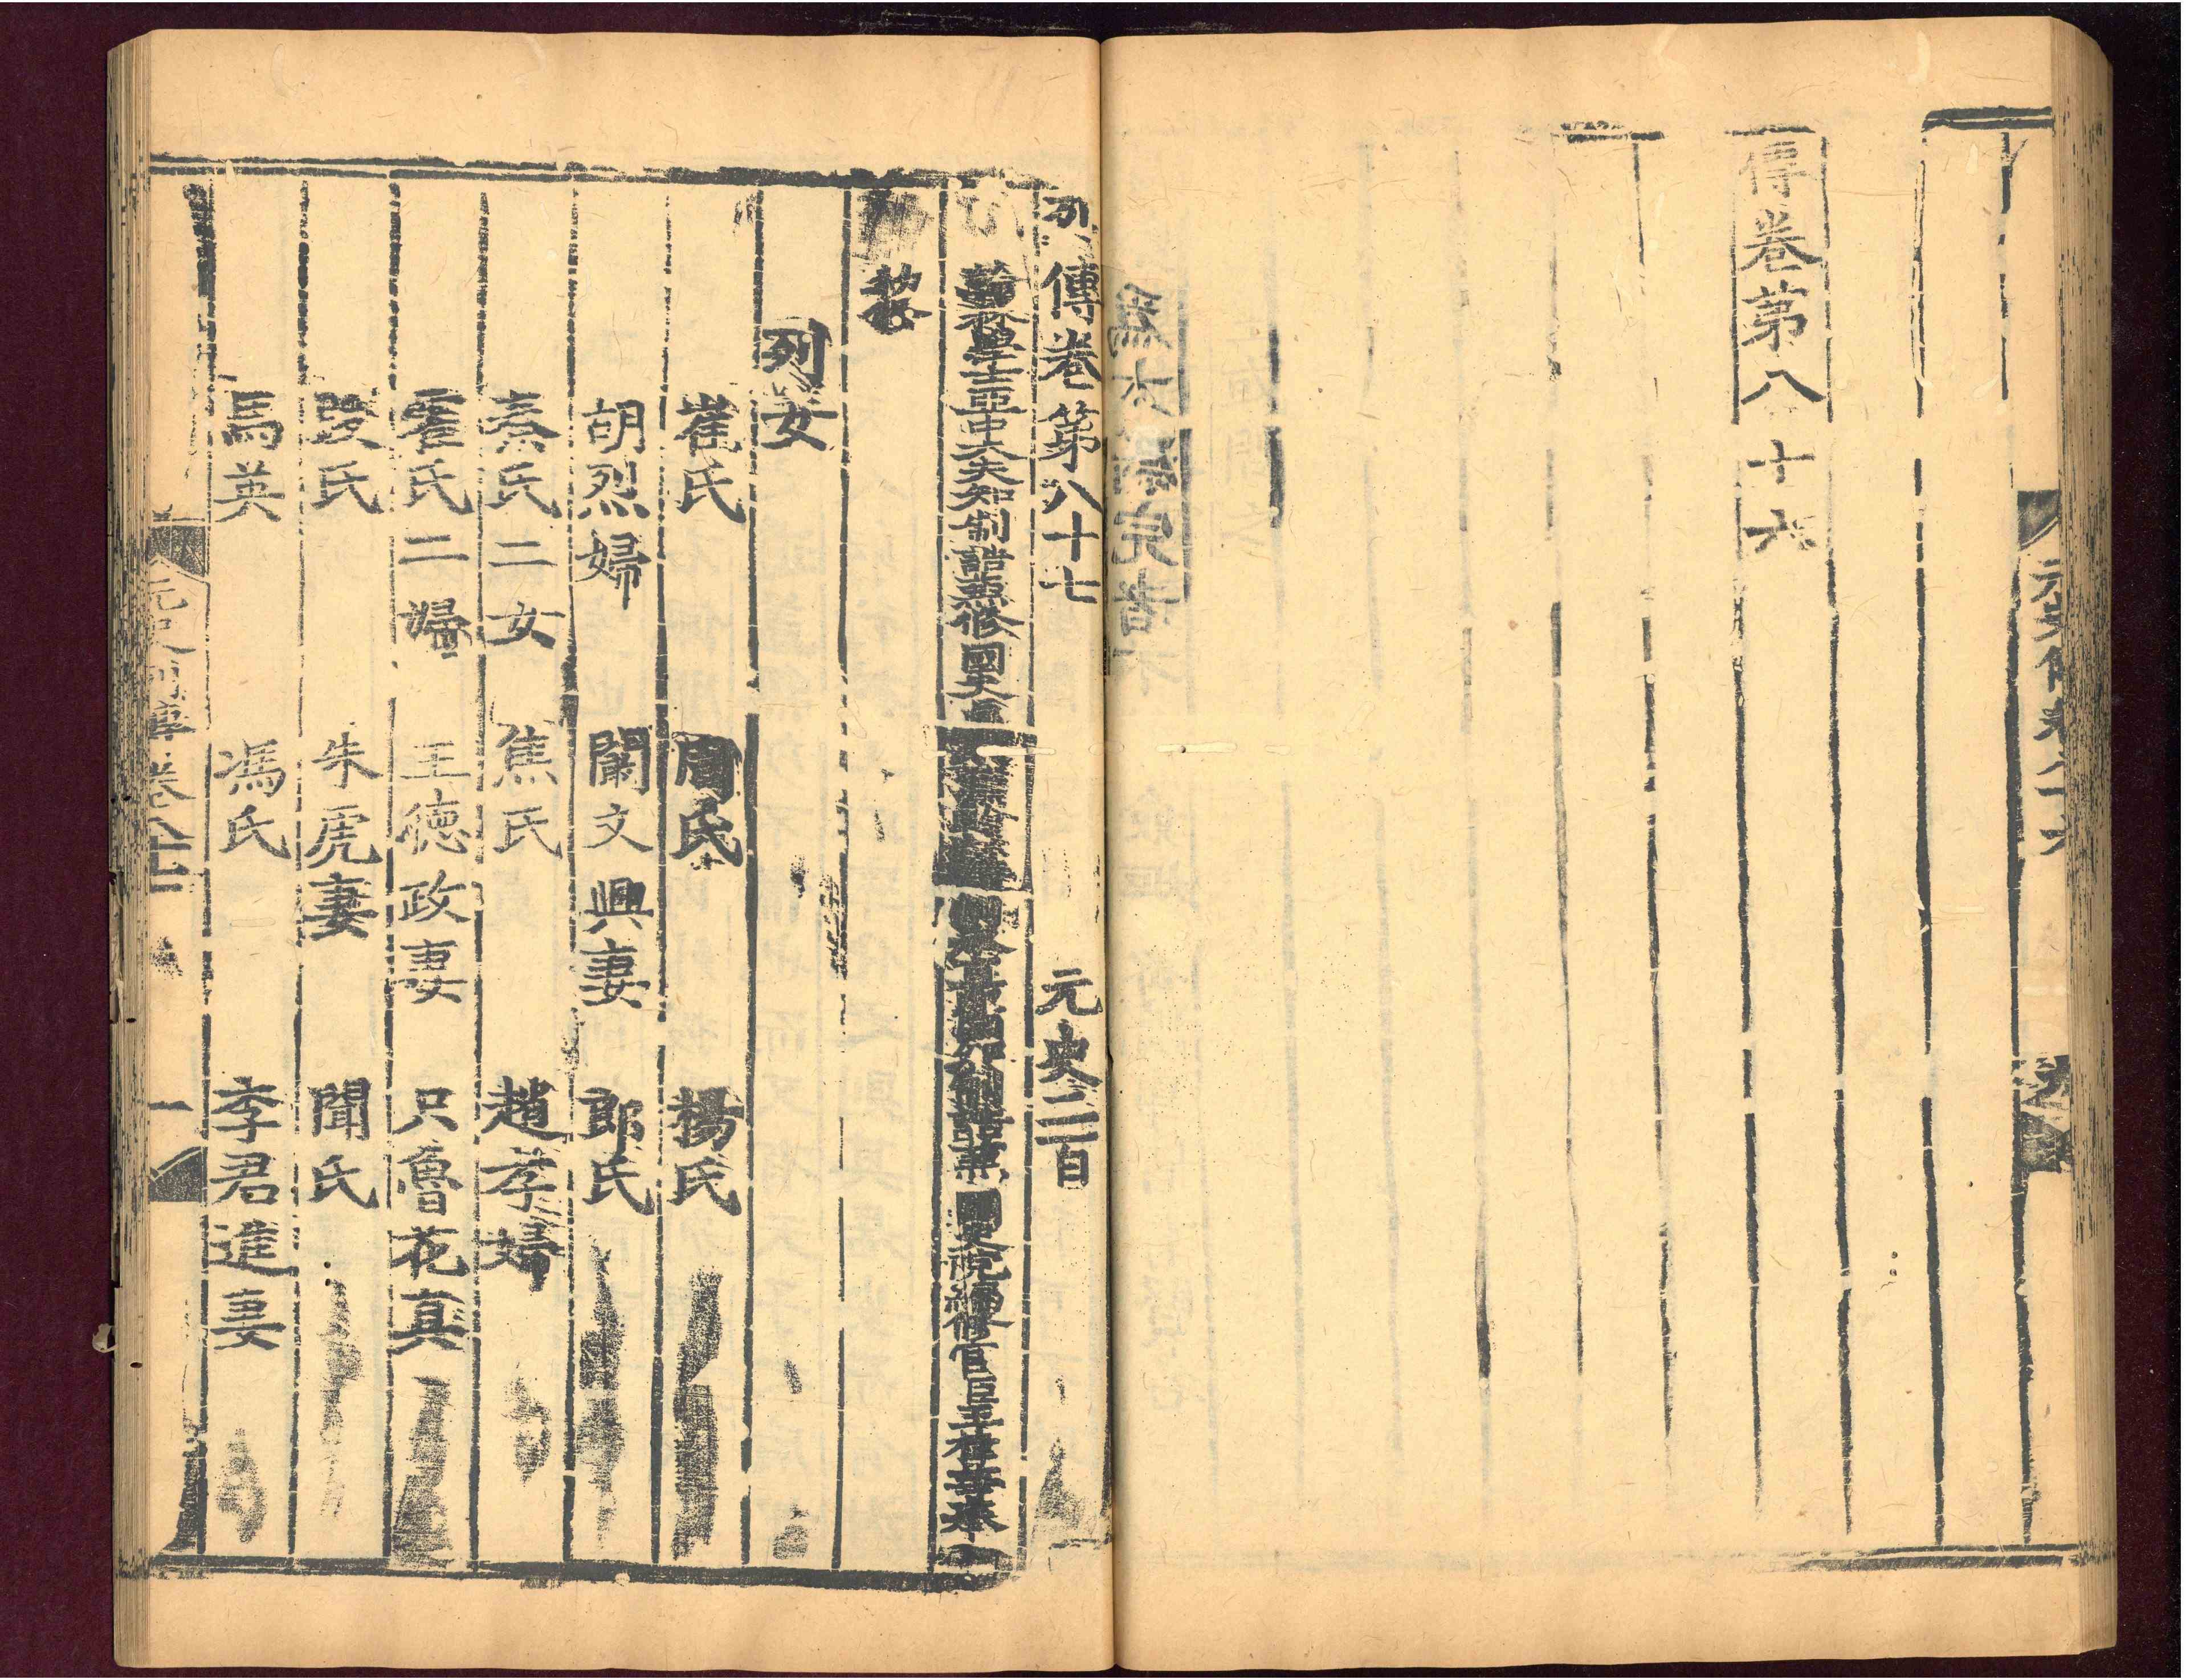 傳卷第八十六
列傳卷第八十七　元史二百
翰林學士亞中大夫知制誥兼修國史臣
編修官臣王禕等奉
敕修
列女
崔氏　周氏　楊氏
胡烈婦　闞文興妻　郎氏
秦氏二女　焦氏　趙孝婦
霍氏二婦　王德政妻　只魯花真
段氏　朱虎妻　聞氏
馬英　馮氏　李君進妻